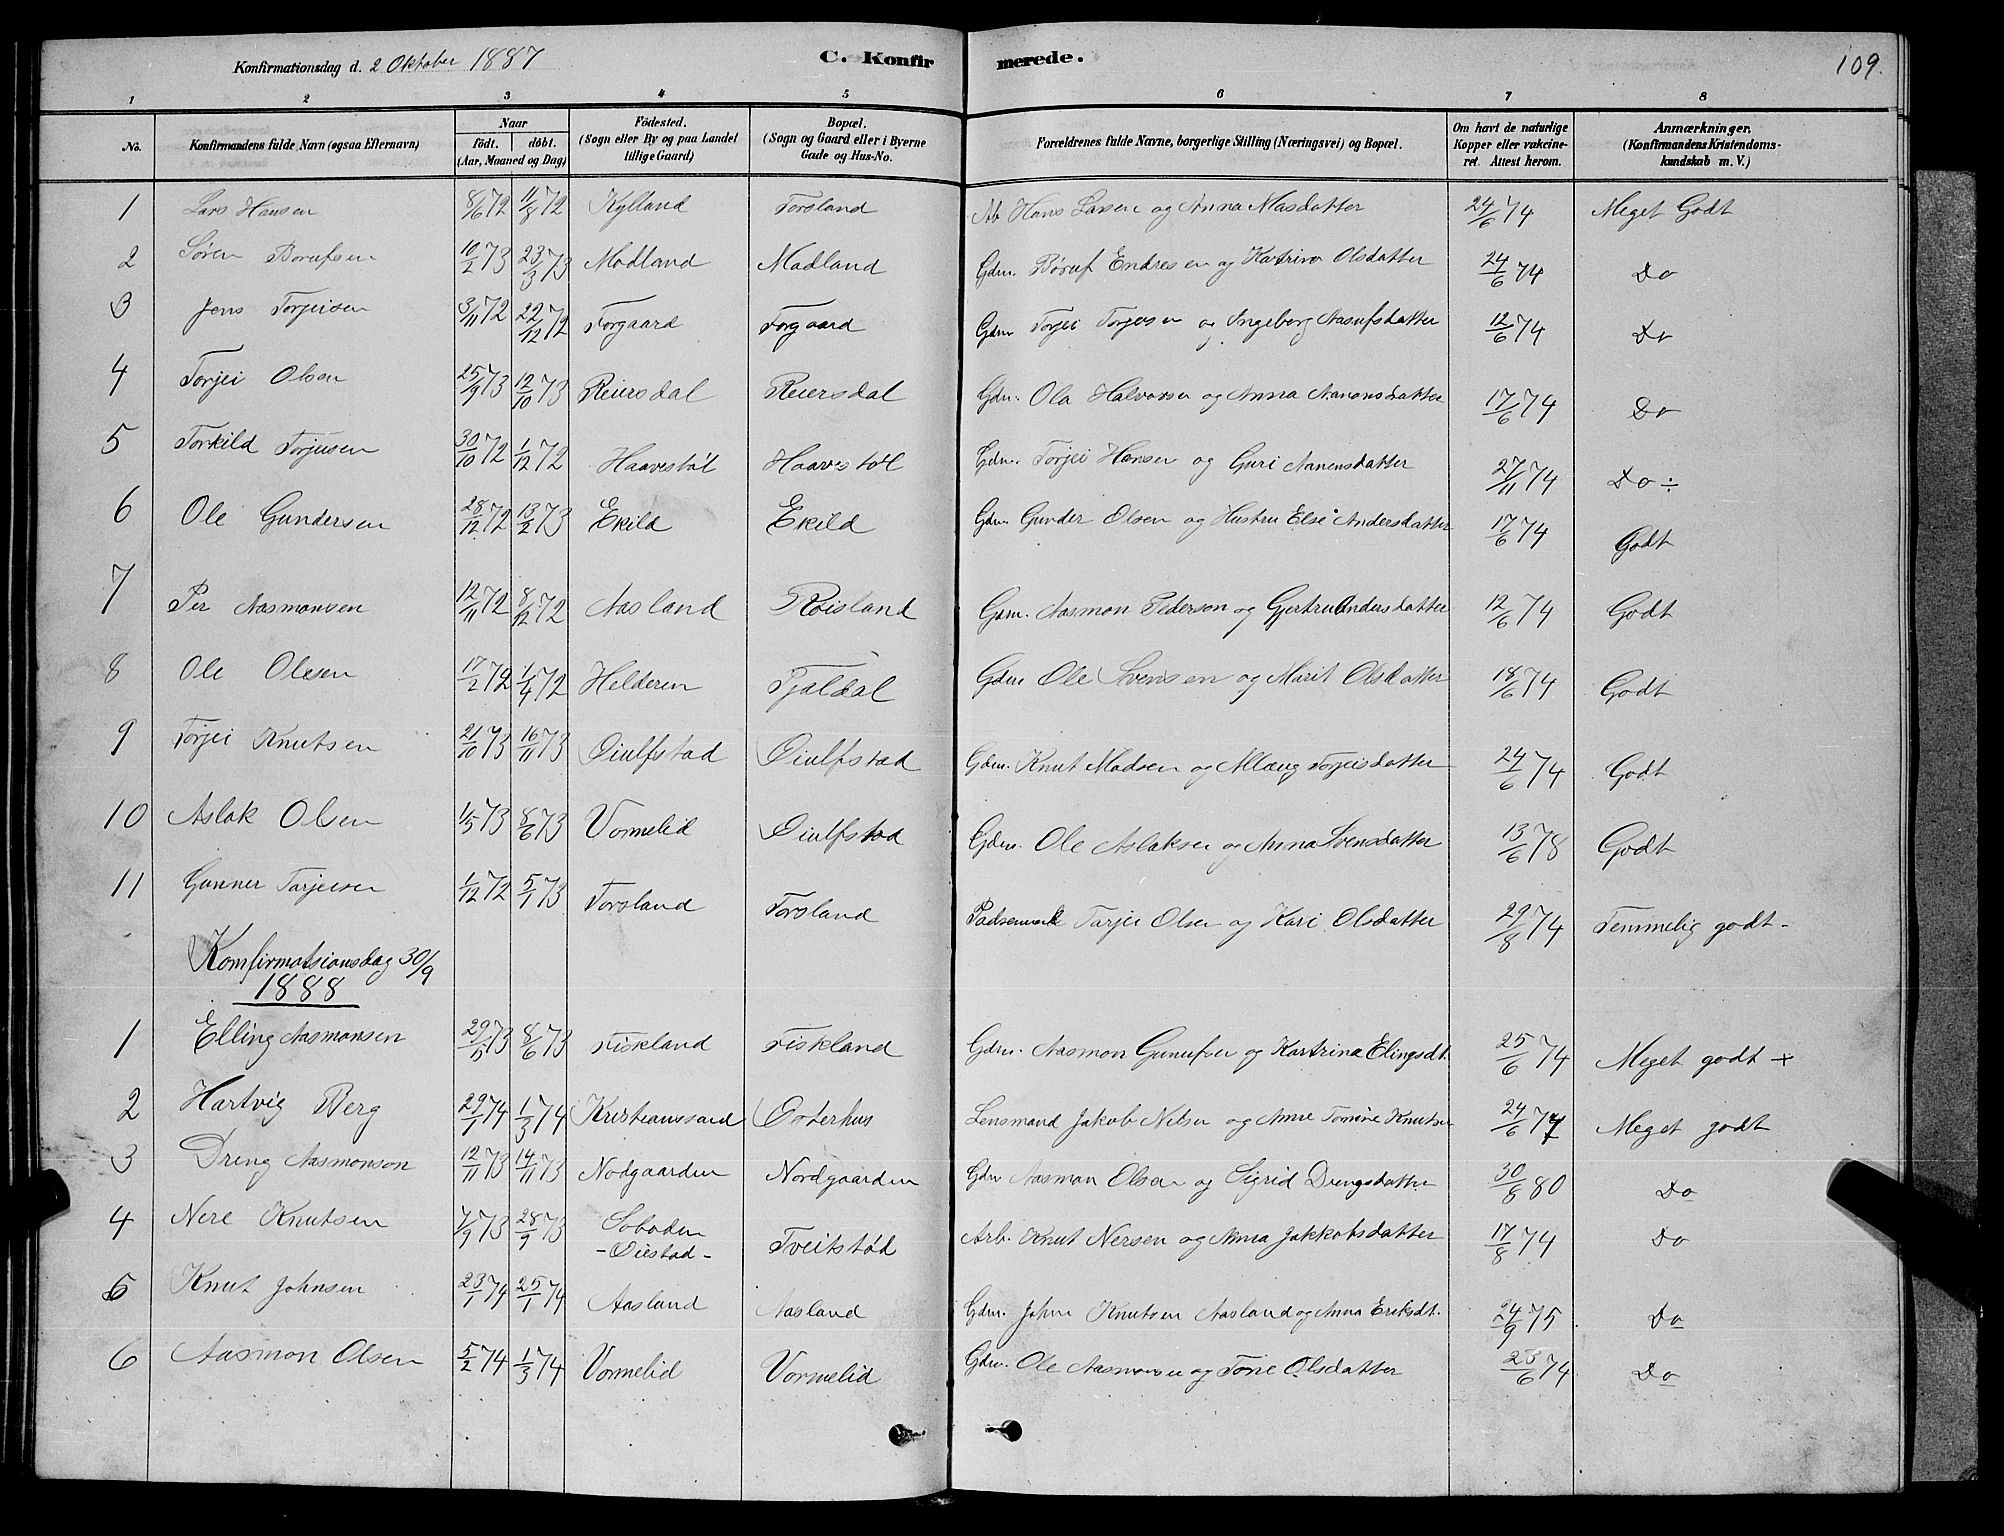 Konfirmationsdag d. 2 Oktober 1887 C. Konfirmerede. 109.
1 2 3 4 5 6 7 8
No. Konfirmandens fulde Navn (ogsaa Efternavn) Naar født. døbt. (Aar, Maaned og Dag) Fødested. (Sogn eller By og paa Landet tillige Gaard) Bopæl. (Sogn og Gaard eller i Byerne Gade og Hus-No. Forældrenes fulde Navne, borgerlige Stilling (Næringsvei) og Bopæl. Om havt de naturlige Kopper eller vakcineret. Attest herom. Anmærkninger. (Konfirmandens Kristendomskundskab m. V.)
1 Lars Hansen 8/6 72 11/8 72 Kylland Forsland Hans Larsen og Anna Masdatter 24/6 74 Meget Godt
2 Søren Børufsen 10/2 73 23/3 73 Modland Madland Gdm. Børuf Endresen og Katrina Olsdatter 24/6 74 Do
3 Jens Torjeisen 3/11 72 22/12 72 Forgaard Forgaard Gdm Torjei Torjeisen og Ingeborg Aasufsdatter 12/6 74 Do
4 Torjei Olsen 25/9 73 12/10 73 Reiersdal Reiersdal Gdm. Ola Halvorsen og Anna Aanonsdatter 17/6 74 Do
5 Torkild Torjusen 30/10 72 1/12 72 Haavestøl Haavestøl Gdm. Torjei Hansen og Guri Aanensdatter 27/11 74 Do ÷
6 Ole Gundersen 28/12 72 13/2 73 Ekild Ekild Gdm. Gunder Olsen og Hustru Else Andersdatter 17/6 74 Godt
7 Per Aasmonsen 12/11 72 8/12 72 Aasland Røisland Gdm. Aasmon Pederson og Gjertru Andersdatter 12/6 74 Godt
8 Ole Olesen 17/2 72 1/4 72 Helderen Tjaldal Gdm Ole Svensen og Marit Olsdatter 18/6 74 Godt
9 Torjei Knutsen 21/10 73 16/11 73 Øiulfstad Øiulfstad Gdm. Knut Madsen og Allaug Torjeisdatter 24/6 74 Godt
10 Aslak Olsen 1/5 73 8/6 73 Vormelid Øiulfstad Gdm. Ole Aslaksen og Anna Svensdatter 13/6 78 Godt
11 Gunner Tarjeisen 1/12 72 5/1 73 Forsland Forsland Tarjei Olsen og Kari Olsdatter 29/8 74 Temmelig godt -
Komfirmatsionsdag 30/9
1888
1 Elling Aasmonsen 29/5 73 8/6 73 Fiskland Fiskland Gdm. Aasmon Gunufsen og Kartrina Elingsdt. 25/6 74 Meget godt +
2 Hartvig Berg 29/1 74 1/3 74 Kristianssand Osterhus Lensmand Jakob Nilsen og Anne Tomine Knutsen 24/6 77 Meget godt
3 Dreng Aasmonson 12/11 73 14/11 73 Nodgaarden Nordgaarden Gdm Aasmon Olsen og Sigrid Drengsdatter 30/8 80 Do
4 Nere Knutsen 7/9 73 28/9 73 Soboden Tveitstød Arb. Knut Nersen og Anna Jakkobsdatter 17/8 74 Do
- Øiestad -
5 Knut Johnsen 23/1 74 25/1 74 Aasland Aasland Gdm. John Knutsen Aasland og Anna Eriksdt. 24/9 75 Do
6 Aasmon Olsen 5/2 74 1/3 74 Vormelid Vormelid Gdm. Ole Aasmonsen og Tone Olsdatter 23/6 74 Do